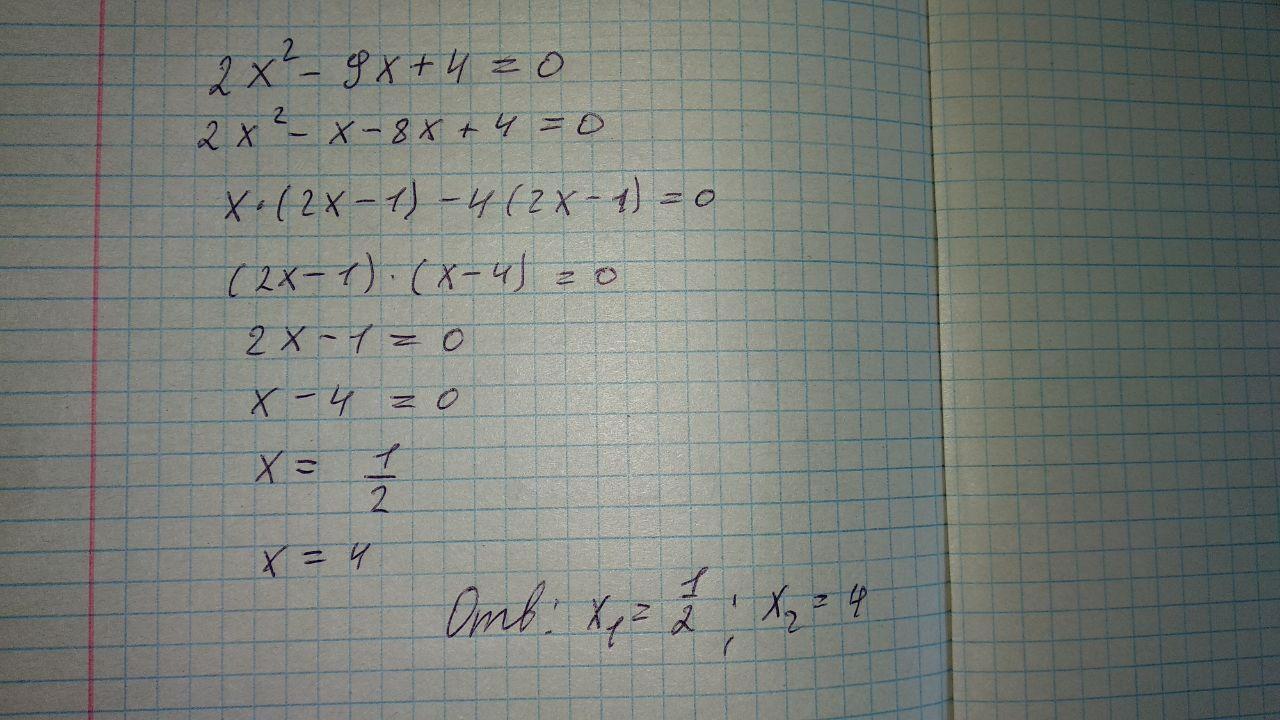 2x² - 9x + 4 = 0
2x² - x - 8x + 4 = 0
x·(2x - 1) - 4(2x - 1) = 0
(2x - 1)·(x - 4) = 0
2x - 1 = 0
x - 4 = 0
x = 1/2
x = 4
Отв: x₁ = 1/2 ; x₂ = 4